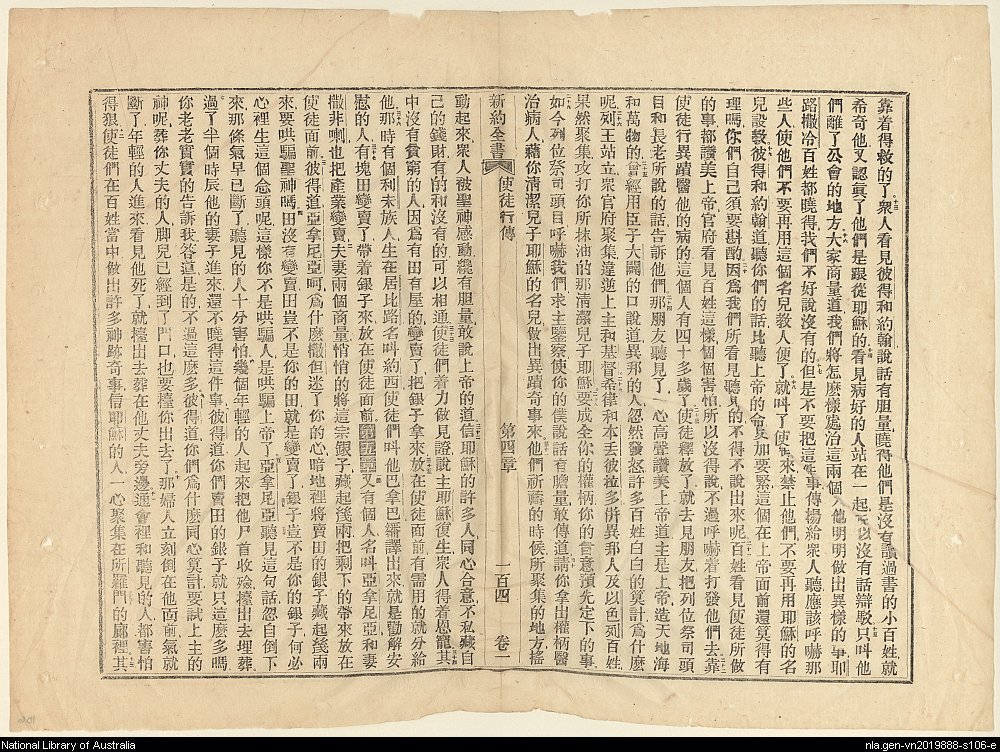 靠着得救的了衆人看見彼得和約翰說話有胆量曉得他們是沒有讀過書的小百姓就
希奇他又認眞了他們是跟從耶穌的看見病好的人站在一起所以沒有話辯駁只叫他
們離了公會的地方大家商量道我們將怎麼樣處治這兩個人他明明做出異樣的事耶
路撒冷百姓都曉得我們不好說沒有的但是不要把這件事傳揚給衆人聽應該呼嚇那
些人使他們不要再用這個名兒敎人便了就叫了使徒來禁止他們不要再用耶穌的名
兒設敎彼得和約翰道聽你們的話比聽上帝的命令加要緊這個在上帝面前還莫得有
理嗎你們自己須要斟酌因爲我們所看見聽見的不得不說出來呢百姓看見使徒所做
的事都讚美上帝官府看見百姓這樣個個害怕所以沒得說不過呼嚇着打發他們去靠
使徒行異蹟醫他的病的這個人有四十多歲了使徒釋放了就去見朋友把列位祭司頭
目和長老所說的話告訴他們那朋友聽見了一心高聲讚美上帝道主是上帝造天地海
和萬物的曾經用臣子大闢的口說道異邦的人忽然發怒許多百姓白白的算計爲什麼
呢列王站立衆官府聚集違逆上主和基督希律和本丟彼拉多併異邦人及以色列百姓
果然聚集攻打你所抹油的那淸潔兒子耶穌要成全你的權柄你的旨意預先定下的事
如今列位祭司頭目呼嚇我們求主鑒察使你的僕說話有膽量敢傳道請你拿出權柄醫
治病人藉你淸潔兒子耶穌的名兒做出異蹟奇事來他們祈禱的時候所聚集的地方搖
新約全書 使徒行傳 第四章 一百四 卷一
動起來衆人被聖神感動纔有胆量敢說上帝的道信耶穌的許多人同心合意不私藏自
己的錢財有的和沒有的可以相通使徒們着力做見證說主耶穌復生衆人得着恩寵其
中沒有貧窮的人因爲有田有屋的變賣了把銀子拿來放在使徒面前有需用的就分給
他那時有個利未族人生在居比路名叫約西使徒們叫他巴拿巴繙譯出來就是勸解安
慰的人有塊田變賣了帶着銀子來放在使徒面前第五章又有個人名叫亞拿尼亞和妻
撒非喇也把產業變賣夫妻兩個商量悄悄的將這宗銀子藏起幾兩把剩下的帶來放在
使徒面前彼得道亞拿尼亞呵爲什麼撒但迷了你的心暗地裡將賣田的銀子藏起幾兩
來要哄騙聖神嗎田沒有變賣田豈不是你的田就是變賣了銀子豈不是你的銀子何必
心裡生這個念頭呢這樣你不是哄騙人是哄騙上帝了亞拿尼亞聽見這句話忽自倒下
來那條氣早已斷了聽見的人十分害怕幾個年輕的人起來把他尸首收殮擡出去埋葬
過了半個時辰他的妻子進來還不曉得這件事彼得道你們賣田的銀子就只這麼多嗎
你老老實實的告訴我答道是的不過這麼多彼得道你們爲什麼同心算計要試上主的
神呢葬你丈夫的人脚兒已經到了門口也要擡你出去了那婦人立刻倒在他面前氣就
斷了年輕的人進來看見他死了就擡出去葬在他丈夫旁邊通會裡和聽見的人都害怕
得狠使徒們在百姓當中做出許多神跡奇事信耶穌的人一心聚集在所羅門的廊裡其
National Library of Australia
nla.gen-vn2019888-s106-e